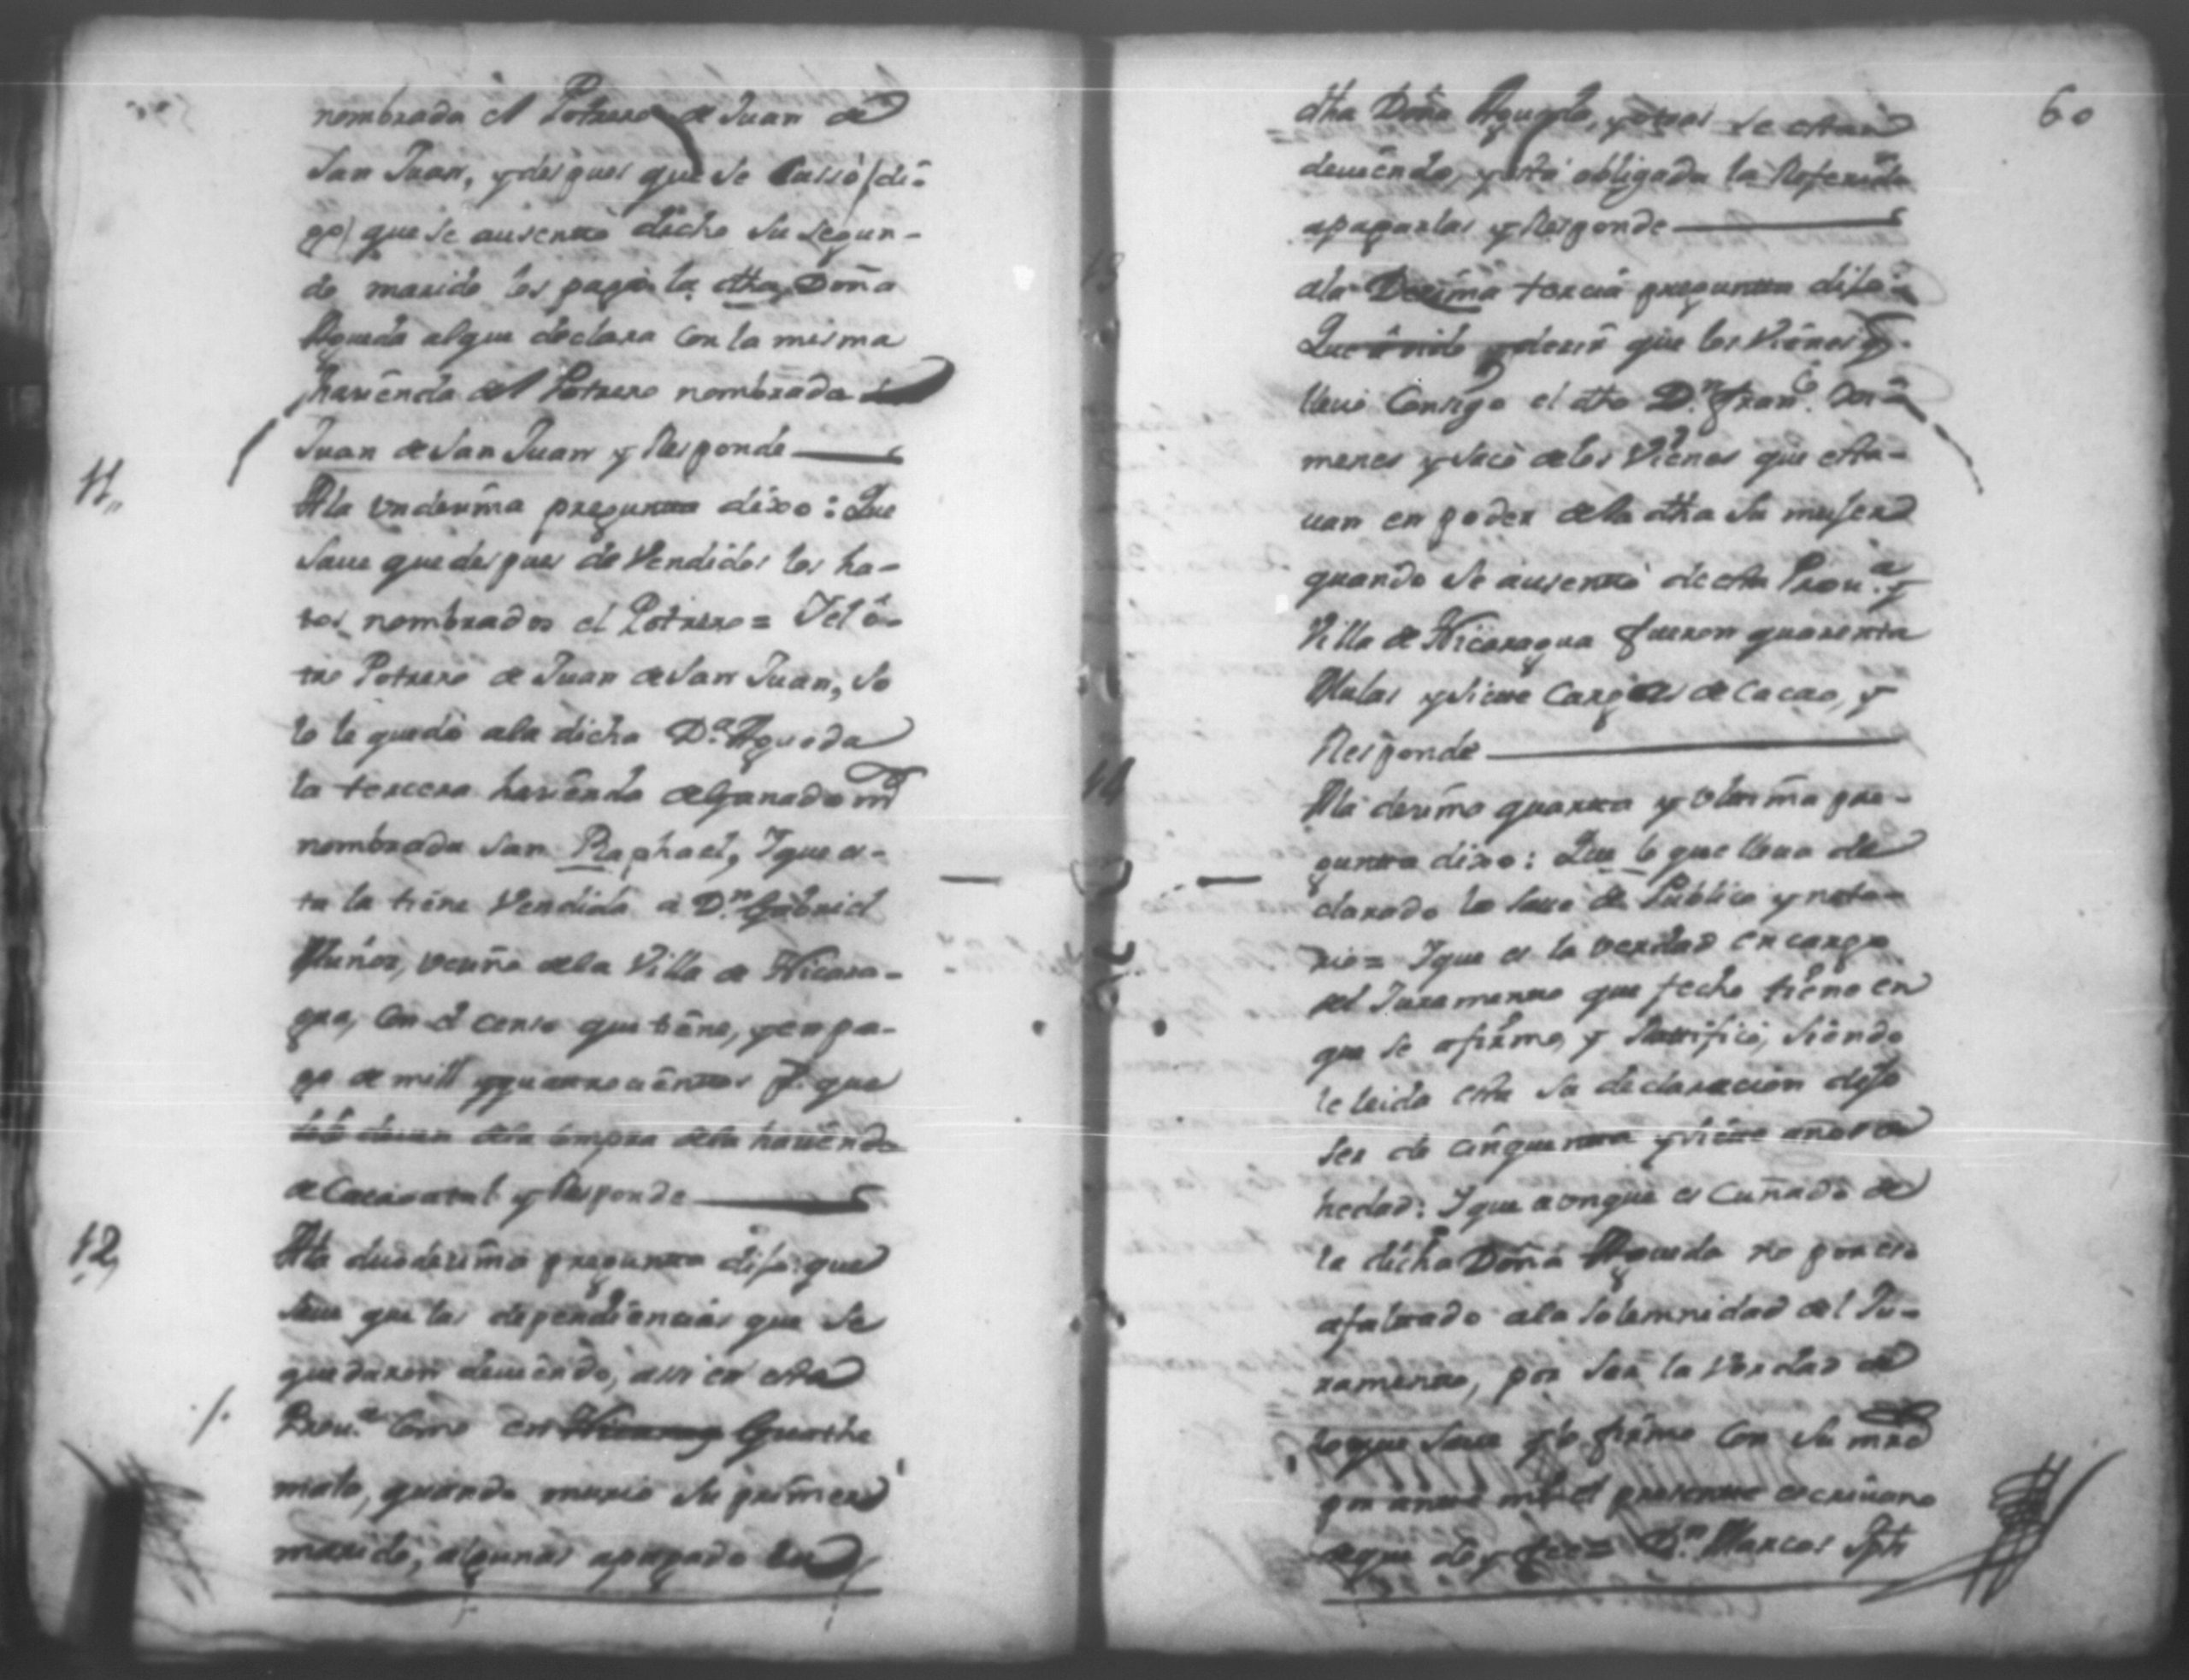 nombrada el Potrero de Juan de
San Juan, y despues que se Cassò (di-
go) que se ausentò dicho su segun-
do marido los pagò la dha, Doña
Agueda alque declara con la mesma
hazienda del Potrero nombrada de
Juan de San Juan y Responde
11,,
Ala Vndezima pregunta dixo: Que
save que despues de Vendidos los ha-
tos nombrados el Potrero = Y el o-
tro Potrero de Juan de San Juan, so
lo le quedò ala dicha D.ª Agueda
la tercera hazienda de Ganado m.r
nombrada San Raphael, Y que es-
ta la tiene Vendida à D.n Gabriel
Muños, vecino dela Villa de Nicara-
gua, con el censo que tiene, y en pa-
go de mill y quatrocientos p.s que
deven dela compra dela hazienda
de y Responde
12,
Ala duodezima pregunta dijo: que
save que las dependiencias que se
quedaron deviendo, assi en esta
Prov.ª como en Guathe
mala, quando murio su primero
marido, algunas apagado la
60
dha Doña Agueda, y otras se estan
deviendo, y està obligada la Referida
apagarlas y Responde
13
ala Dezima tercia pregunta dijo:
Que à oido dezir que los Vienes q.
llevò Consigo el dho D.n Fran.co Colo
menes y sacò delos Vienes que esta-
van en poder dela dha su mujer
quando se ausentò de esta Prov.ª y
Villa de Nicaragua fueron quarenta
Mulas y siete cargas de Cacao, y
Responde
14
Ala dezima quarta y Vltima pre-
gunta dixo: Que lo que lleva de
clarado lo save de Publico y noto-
rio = Y que es la verdad en cargo
del Juramento que fecho tiene en
que se afirmò, y Ratificò, siendo
le leida esta su declaracion dijo
ser de cinquenta y siete años de
hedad: Y que aonque es Cuñado de
la dicha Doña Agueda no por eso
afaltado ala solemnidad del Ju-
ramento, por ser la verdad de
loque save y lo firmò con su mrd
por ante mi el presente escrivano
deque doy fee = D.n Marcos Jph